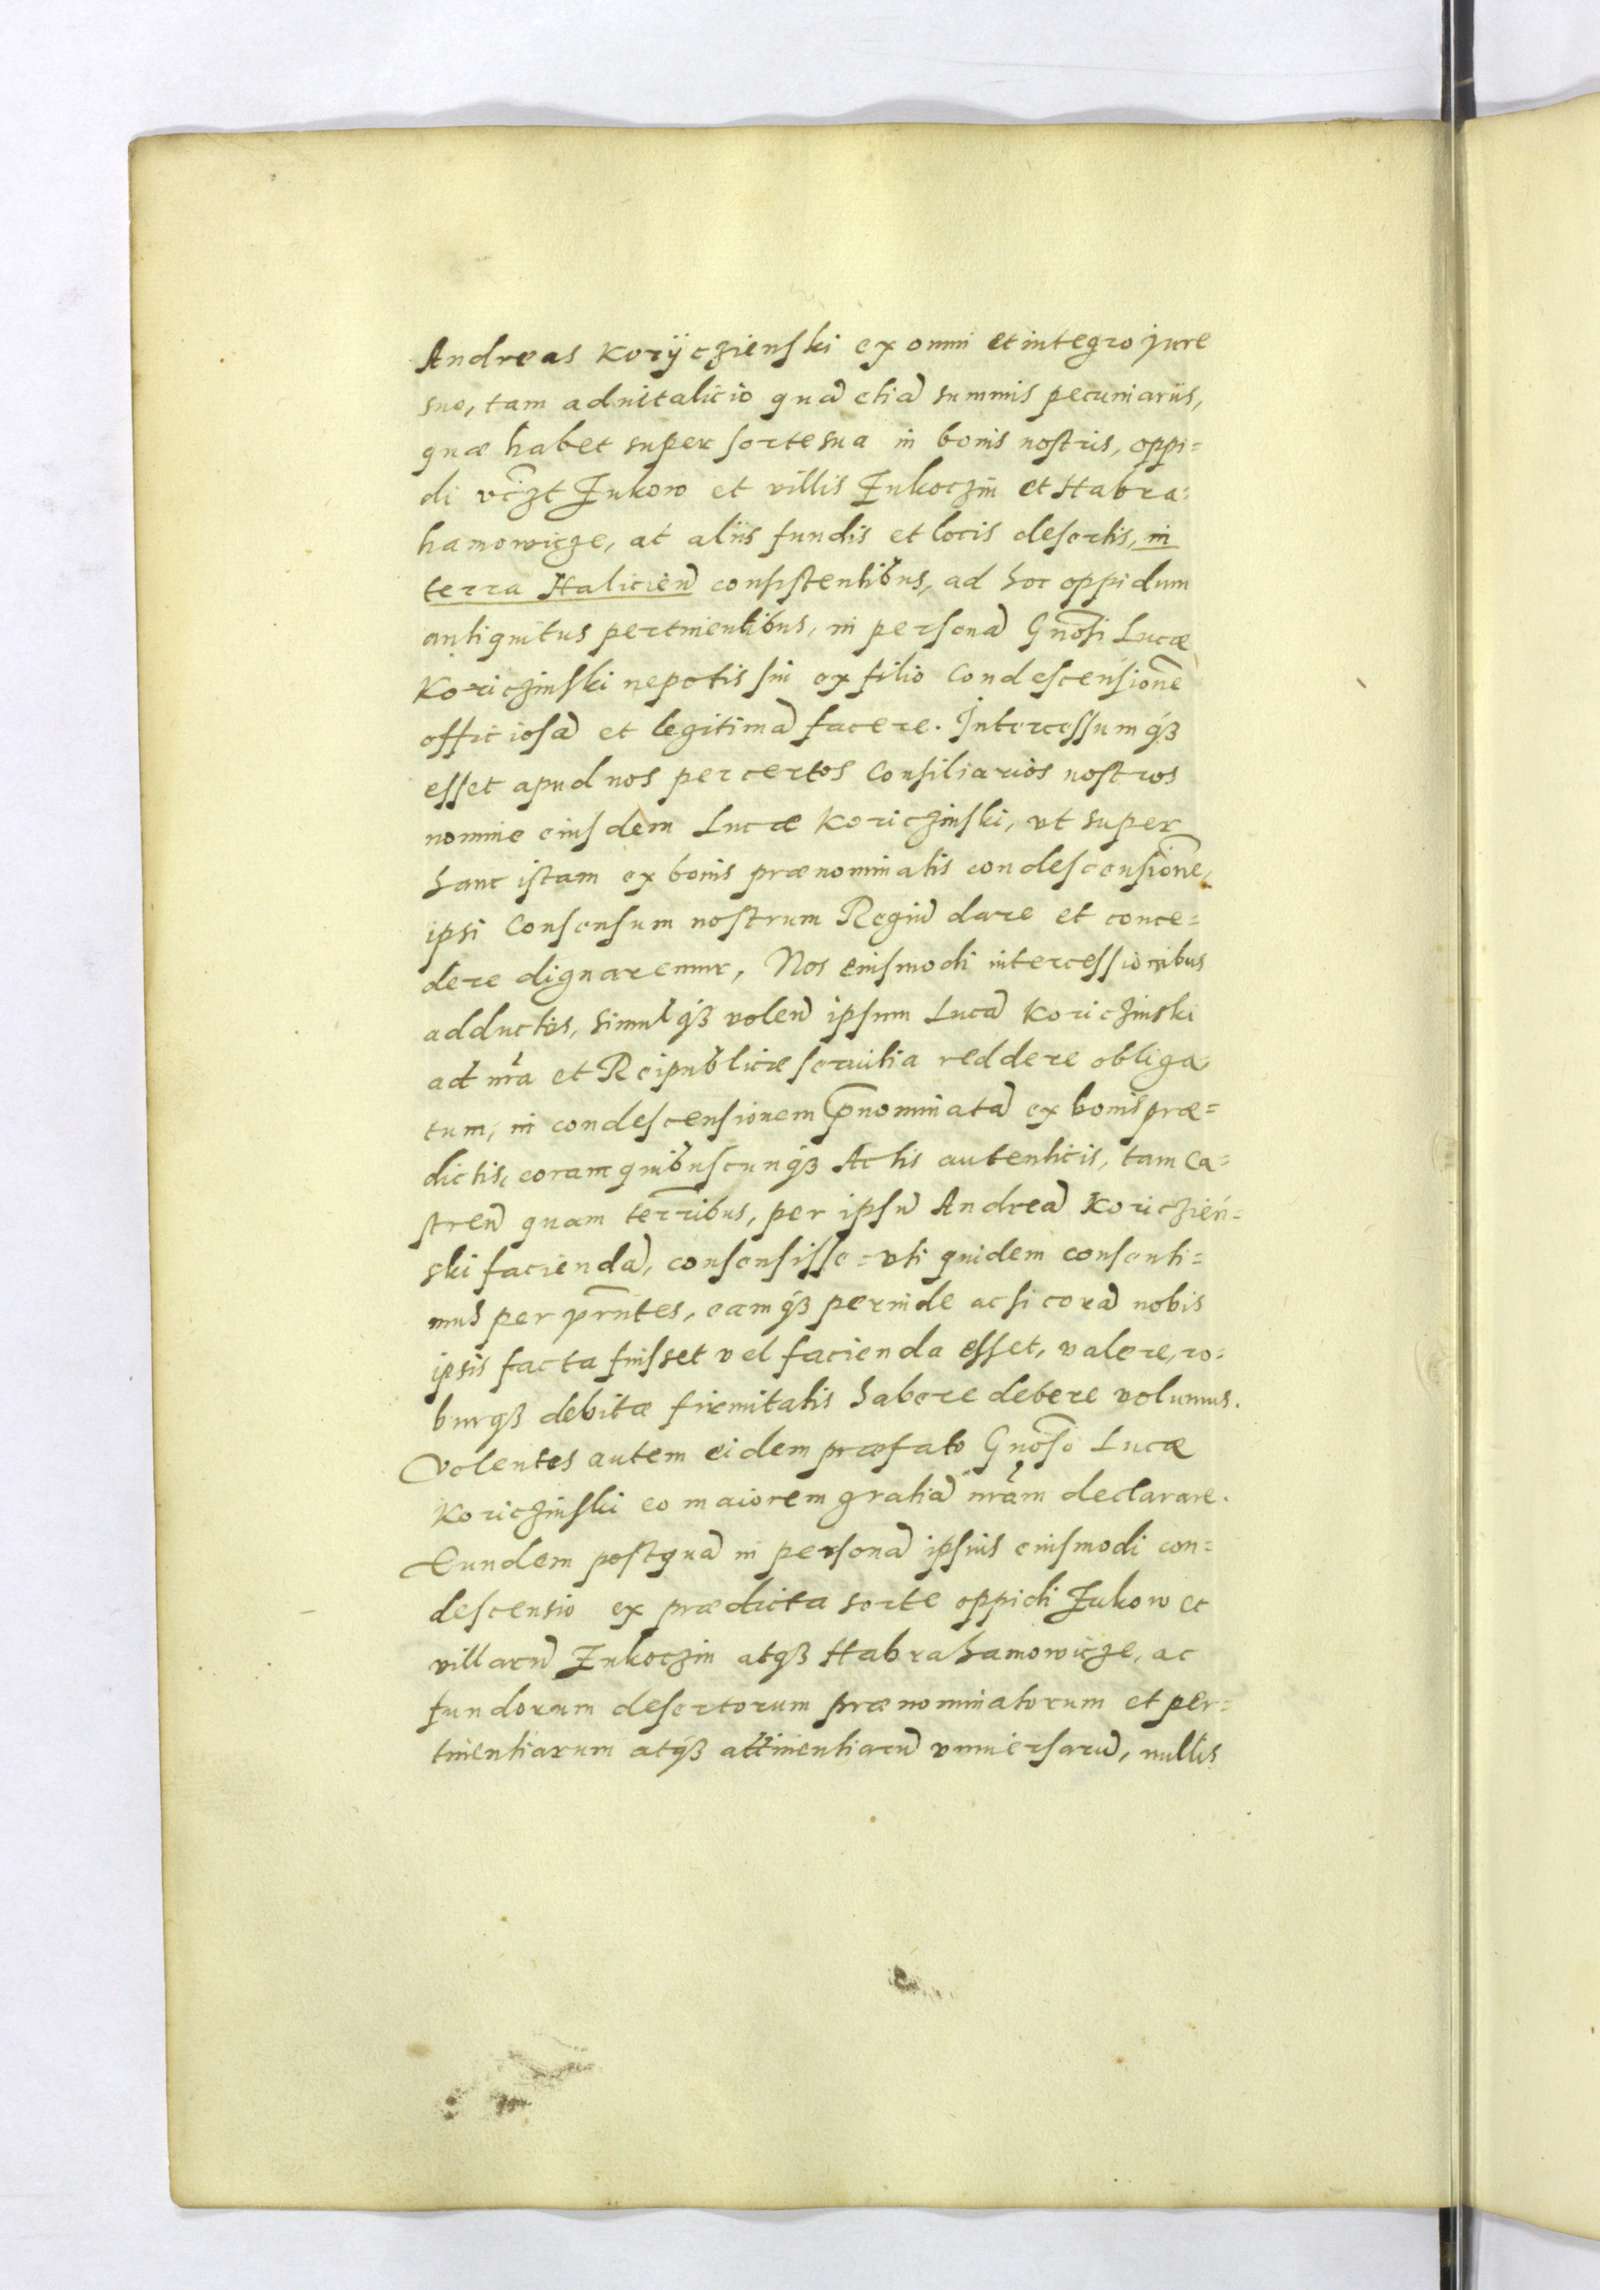 Andreas Koryczienski ex omni et integro jure
suo, tam aduitalicio quã etiã summis pecuniariis,
quæ habet super sorte sua in bonis nostris, oppi=
di vc̃zt Zukow et villis Zukoczin et Habra=
hamowicze, at aliis fundis et locis desertis, in
terra Halicien̄ consistentibus, ad hoc oppidum
antiquitus pertinentibus, in personã Gñosi Lucæ
Koriczinski nepotis sui ex filio Condescensionẽ
officiosã et legitimã facere. Intercessumqȝ
esset apud nos per certos Consiliarios nostros
nomine eiusdem Lucæ Koriczinski, vt super
hanc istam ex bonis prænominatis condescensionẽ,
ipsi Consensum nostrum Regiũ dare et conce=
dere dignaremur, Nos eiusmodi intercessionibus
adductos, simulqȝ volen̄ ipsum Lucã Koriczinski
ad nr̃a et Reipublicæ seruitia reddere obliga
tum, in condescensionem p̃nominatã ex bonis præ=
dictis, coram quibuscunqȝ Actis autenticis, tam Ca=
stren̄ quam terr̃ibus, per ipsũ Andreã Koriczień=
ski faciendã, consensisse = vti quidem consenti=
mus per pr̃ntes, eamqȝ perinde ac si corã nobis
ipsis facta fuisset vel facienda esset, valere, ro=
burqȝ debitæ firmitatis habere debere volumus.
Volentes autem eidem præfato Gñoso Lucæ
Koriczinski eo maiorem gratiã nr̃am declarare.
Eundem postquã in personã ipsius eiusmodi con=
descensio ex prædicta sorte oppidi Zukow et
villarũ Zukoczin atqȝ Habrahamowicze, ac
fundorum desertorum prænominatorum et per=
tinentiarum atqȝ attinentiarũ vniuersarũ, nullis